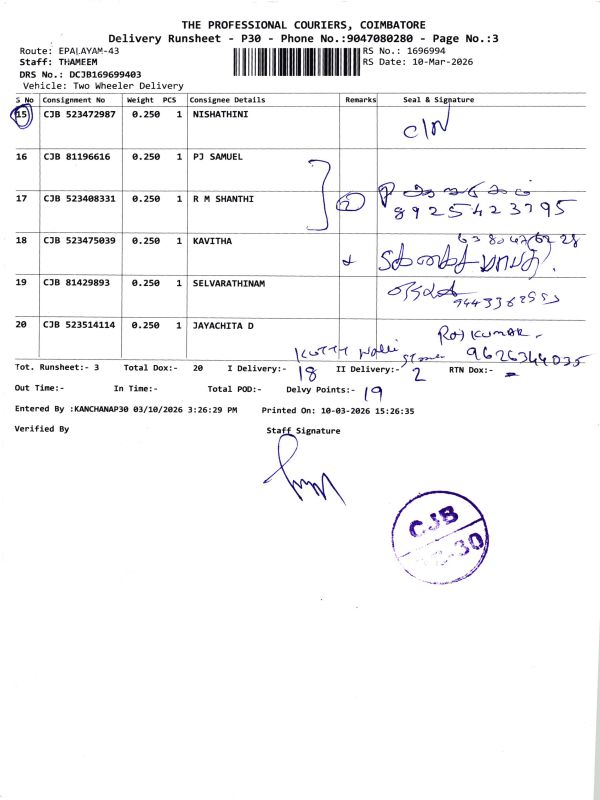 THE PROFESSIONAL COURIERS, COIMBATORE
Delivery Runsheet - P30 - Phone No.:9047080280 - Page No.:3
Route: EPALAYAM-43
RS No.: 1696994
Staff: THAMEEM
RS Date: 10-Mar-2026
DRS No.: DCJB169699403
Vehicle: Two Wheeler Delivery
S No Consignment No Weight PCS Consignee Details Remarks Seal & Signature
15 CJB 523472987 0.250 1 NISHATHINI
C/N
16 CJB 81196616 0.250 1 PJ SAMUEL
17 CJB 523408331 0.250 1 R M SHANTHI 2
8925423795
18 CJB 523475039 0.250 1 KAVITHA
19 CJB 81429893 0.250 1 SELVARATHINAM
20 CJB 523514114 0.250 1 JAYACHITA D
RAJ KUMAR
9626344035
Tot. Runsheet:- 3 Total Dox:- 20 I Delivery:- 18 II Delivery:- 2 RTN Dox:- -
Out Time:- In Time:- Total POD:- Delvy Points:- 19
Entered By :KANCHANAP30 03/10/2026 3:26:29 PM Printed On: 10-03-2026 15:26:35
Verified By Staff Signature
CJB
30